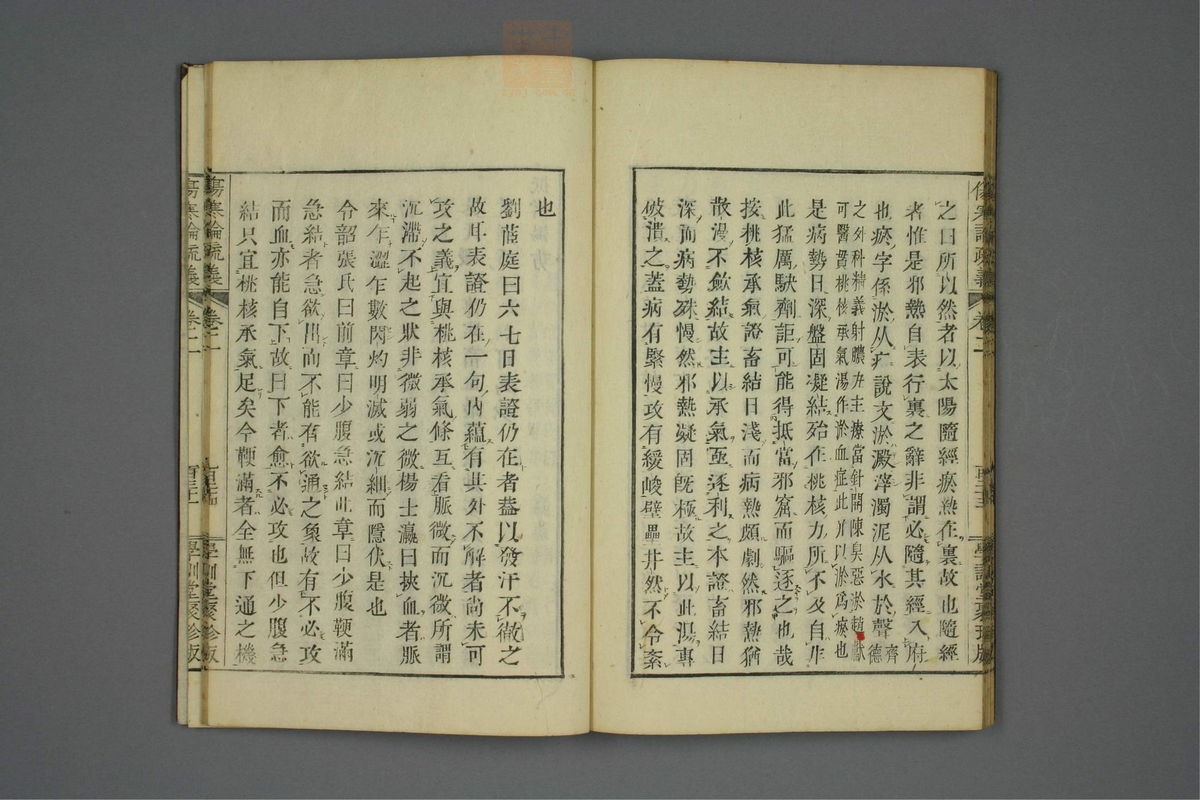 傷寒論疏義
卷二
學訓堂聚珍版
之曰所以然者以太陽隨經瘀熱在裏故也隨經
者惟是邪熱自表行裏之辭非謂必隨其經入府
也瘀字係淤从疒說文淤澱滓濁泥从水於聲齊德
之外科精義射膿方主療當針開陳臭惡淤
可醫貫桃核承氣湯作淤血症此以淤爲瘀也
是病勢日深盤固凝結殆在桃核力所不及自非
此猛厲駃劑詎可能得抵當邪窟而驅逐之也哉
按桃核承氣證畜結日淺而病熱頗劇然邪熱猶
散漫不斂結故主以承氣亟逐利之本證畜結日
深而病勢殊慢然邪熱凝固旣極故主以此湯專
破潰之蓋病有緊慢攻有緩峻壁壘井然不令紊
也
劉茝庭曰六七日表證仍在者蓋以發汗不徹之
故耳表證仍在一句內蘊有其外不解者尚未可
攻之義宜與桃核承氣條互看脈微而沉微所謂
沉滯不起之狀非微弱之微楊士瀛曰挾血者脈
來乍澀乍數閃灼明滅或沉細而隱伏是也
令韶張氏曰前章曰少腹急結此章曰少腹鞕滿
急結者急欲出而不能有欲通之象故有不必攻
而血亦能自下故曰下者愈不必攻也但少腹急
結只宜桃核承氣足矣今鞕滿者全無下通之機
傷寒論疏義
卷二
學訓堂聚珍版